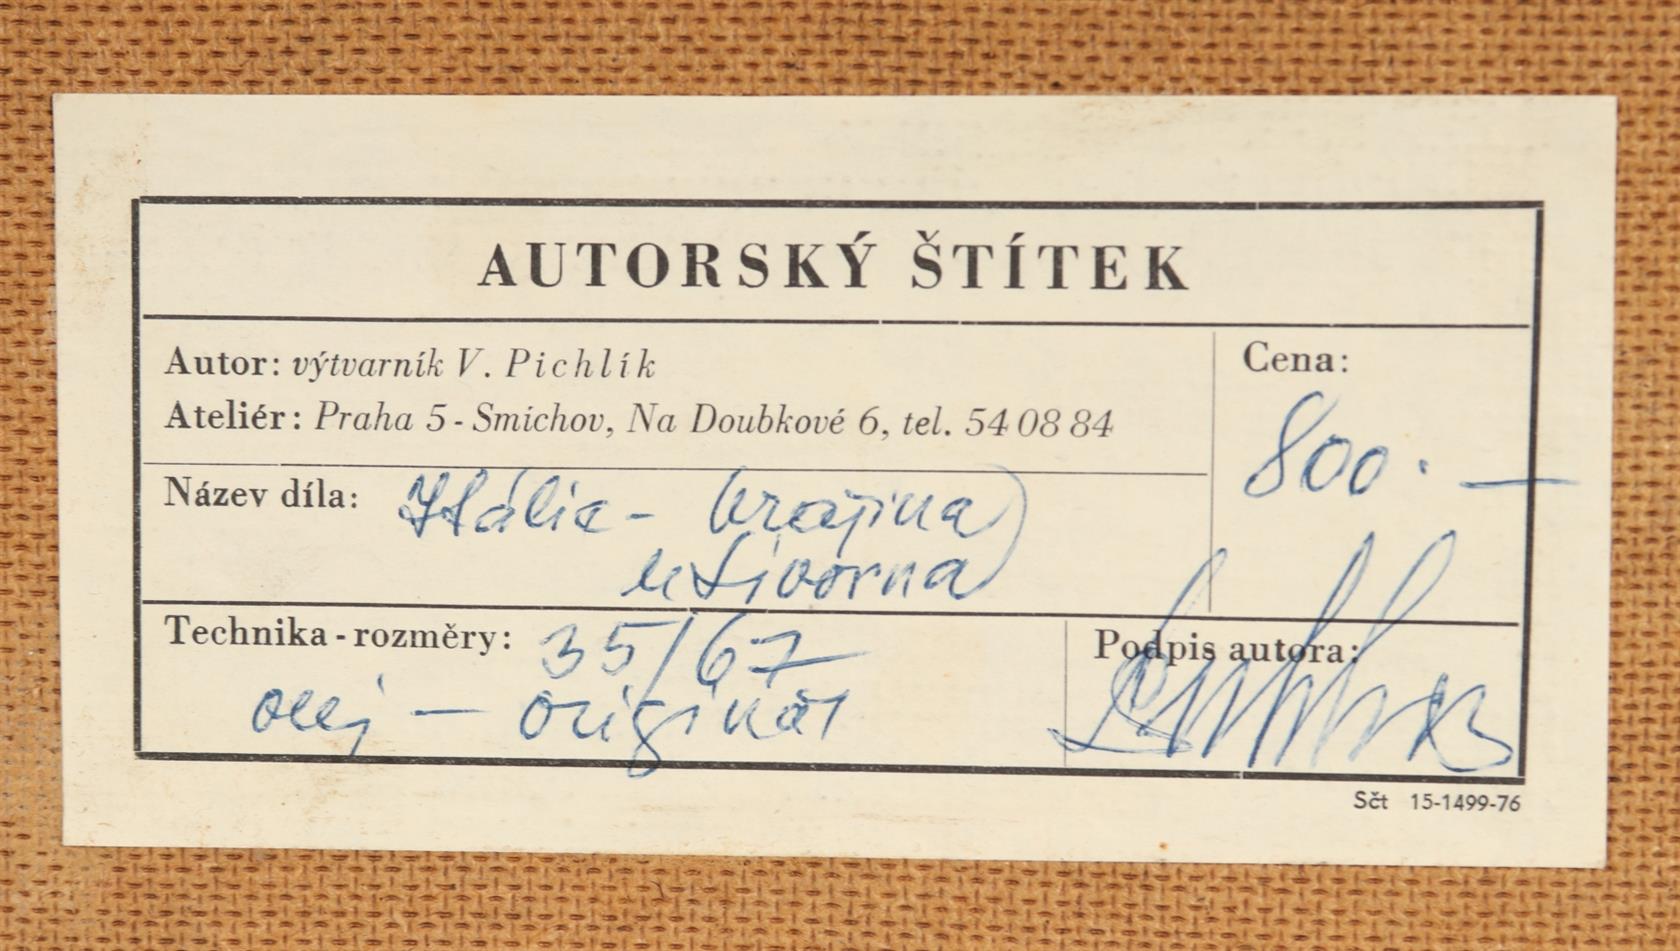 AUTORSKÝ ŠTÍTEK
Autor: výtvarník V. Pichlík
Ateliér: Praha 5 - Smíchov, Na Doubkové 6, tel. 54 08 84
Cena:
800.—
Název díla: Itálie - krajina
u Livorna
Technika - rozměry: 35/67
olej — originál
Podpis autora:
Sčt 15-1499-76